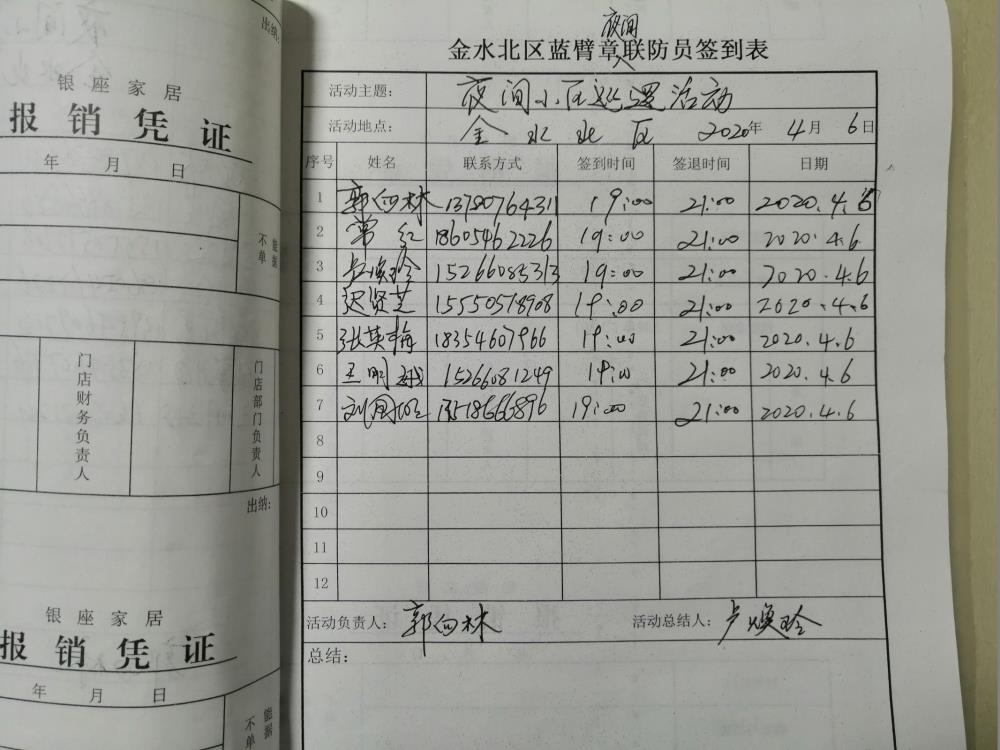 出纳:
银座家居
报销凭证
年 月 日
不单
能据
门店财务负责人
门店部门负责人
出纳:
银座家居
报销凭证
年 月 日
不单
能据
夜间
金水北区蓝臂章联防员签到表
活动主题: 夜间小区巡逻活动
活动地点: 金水北区 2020年 4月 6日
序号 姓名 联系方式 签到时间 签退时间 日期
1 郭向林 13780764311 19:00 21:00 2020.4.6
2 常红 18605462226 19:00 21:00 2020.4.6
3 卢焕玲 15266085313 19:00 21:00 2020.4.6
4 迟贤芝 15550518908 19:00 21:00 2020.4.6
5 张英梅 18354607966 19:00 21:00 2020.4.6
6 王明娥 15266081249 19:00 21:00 2020.4.6
7 19:00 21:00 2020.4.6
8
9
10
11
12
活动负责人: 郭向林 活动总结人: 卢焕玲
总结: